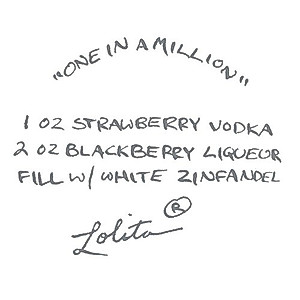 "ONE IN A MILLION"
1 OZ STRAWBERRY VODKA
2 OZ BLACKBERRY LIQUEUR
FILL W/ WHITE ZINFANDEL
Lolita ®